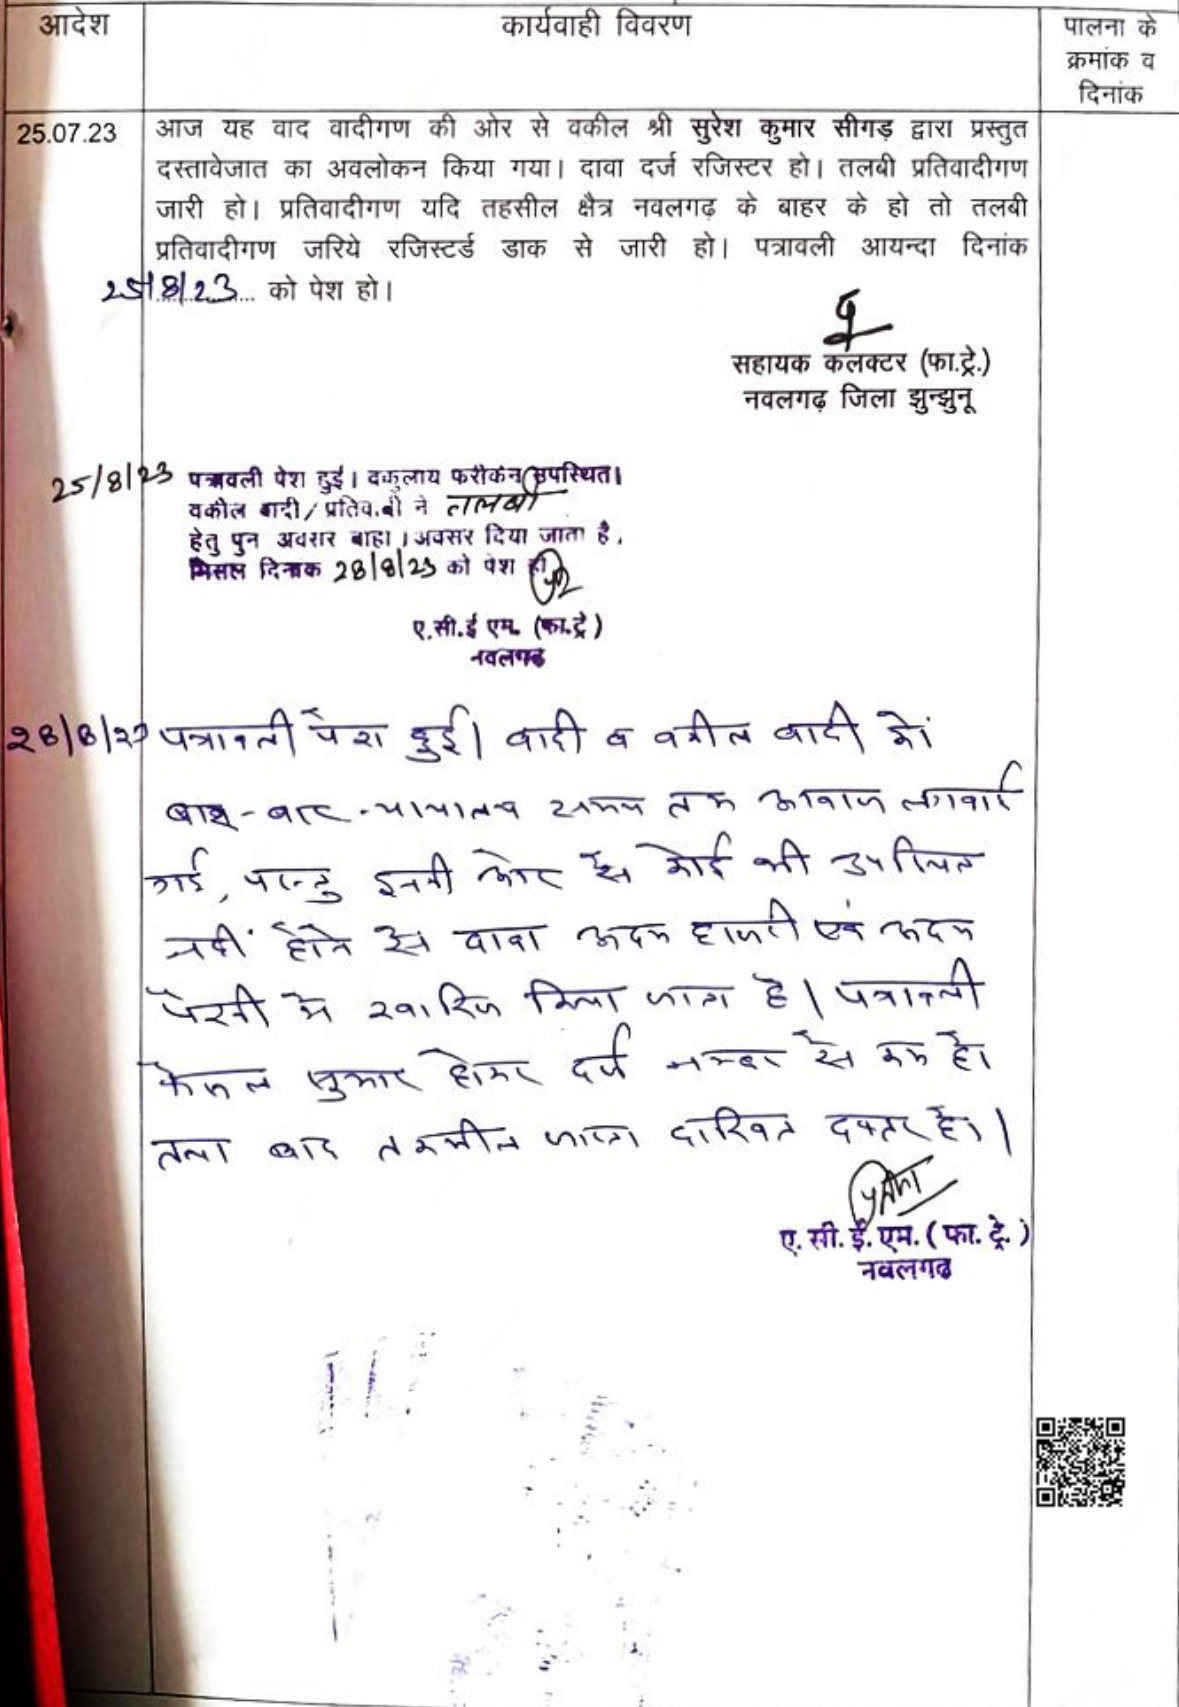 आदेश
कार्यवाही विवरण
पालना के
क्रमांक व
दिनांक
25.07.23
आज यह वाद वादीगण की ओर से वकील श्री सुरेश कुमार सीगड़ द्वारा प्रस्तुत
दस्तावेजात का अवलोकन किया गया। दावा दर्ज रजिस्टर हो। तलबी प्रतिवादीगण
जारी हो। प्रतिवादीगण यदि तहसील क्षैत्र नवलगढ़ के बाहर के हो तो तलबी
प्रतिवादीगण जरिये रजिस्टर्ड डाक से जारी हो। पत्रावली आयन्दा दिनांक
25/8/23 को पेश हो।
सहायक कलक्टर (फा.ट्रे.)
नवलगढ़ जिला झुन्झुनू
25/8/23 पत्रावली पेश हुई। वकुलाय फरीकेन उपस्थित।
वकील वादी/प्रतिवादी ने तलबी
हेतु पुन अवसर चाहा। अवसर दिया जाता है.
मिसल दिनांक 28/8/23 को पेश हो
ए.सी.ई एम. (फा.ट्रे)
नवलगढ
28/8/23 पत्रावली पेश हुई। वादी व वकील वादी को
बार-बार न्यायालय समय तक आवाज लगवाई
गई, परन्तु इनकी ओर से कोई भी उपस्थित
नहीं होने से दावा अदम हाजरी एवं अदम
पैरवी में खारिज किया जाता है। पत्रावली
फैसल शुमार होकर दर्ज नम्बर से कम हो
तथा बाद तकमील दाखिल दफ्तर हो।
ए. सी. ई. एम. (फा. ट्रे.)
नवलगढ